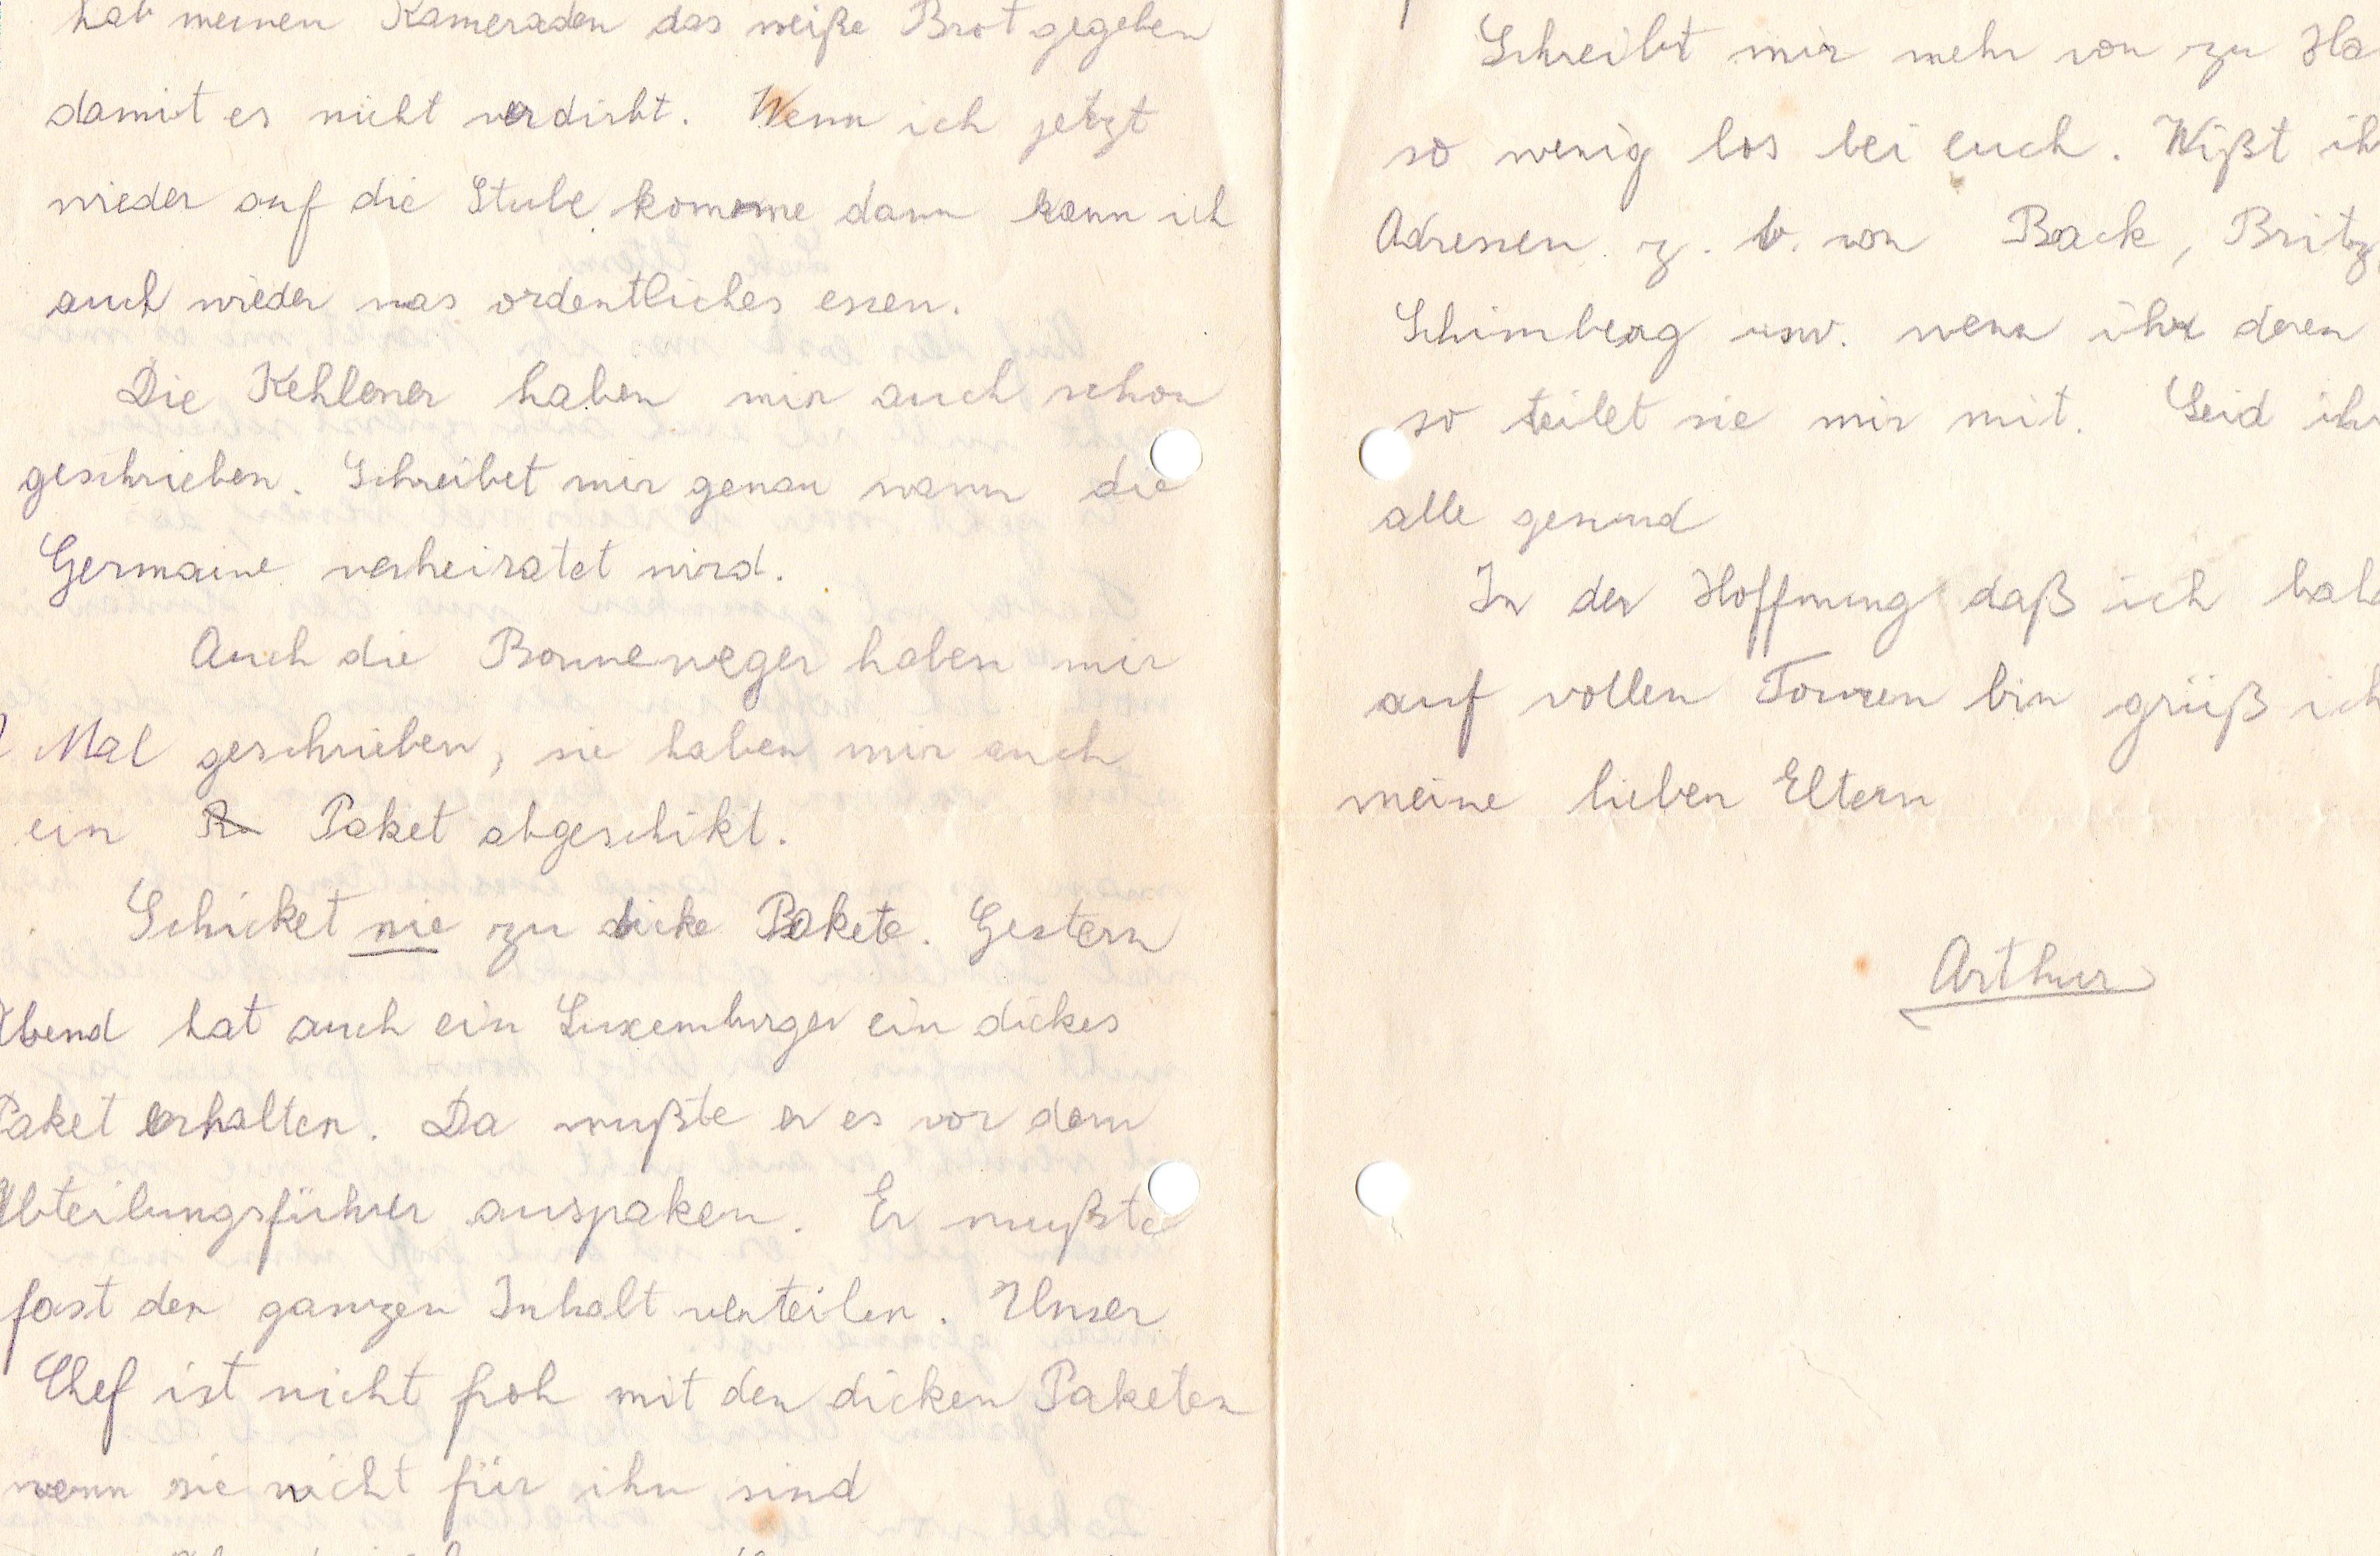 hab meinen Kameraden das weiße Brot gegeben
damit es nicht verdirbt. Wenn ich jetzt
wieder auf die Stube komme dann kann ich
auch wieder was ordentliches essen.
Die Kehlener haben mir auch schon
geschrieben. Schreibet mir genau wann die
Germaine verheiratet wird.
Auch die Bonneweger haben mir
Mal geschrieben, sie haben mir auch
ein Paket abgeschikt.
Schicket nie zu dicke Pakete. Gestern
Abend hat auch ein Luxemburger ein dickes
Paket erhalten. Da mußte er es vor dem
Abteilungsführer auspaken. Er mußte
fast den ganzen Inhalt verteilen. Unser
Chef ist nicht froh mit den dicken Paketen
wenn sie nicht für ihn sind
Schreibt mir mehr von zu Ha
so wenig los bei euch. Wißt ih
Adressen z. b. von Back, Britz
Schimberg usw. wenn ihr deren
so teilet sie mir mit. Seid ihr
alle gesund
In der Hoffnung daß ich bald
auf vollen Touren bin grüß ich
meine lieben Eltern
Arthur